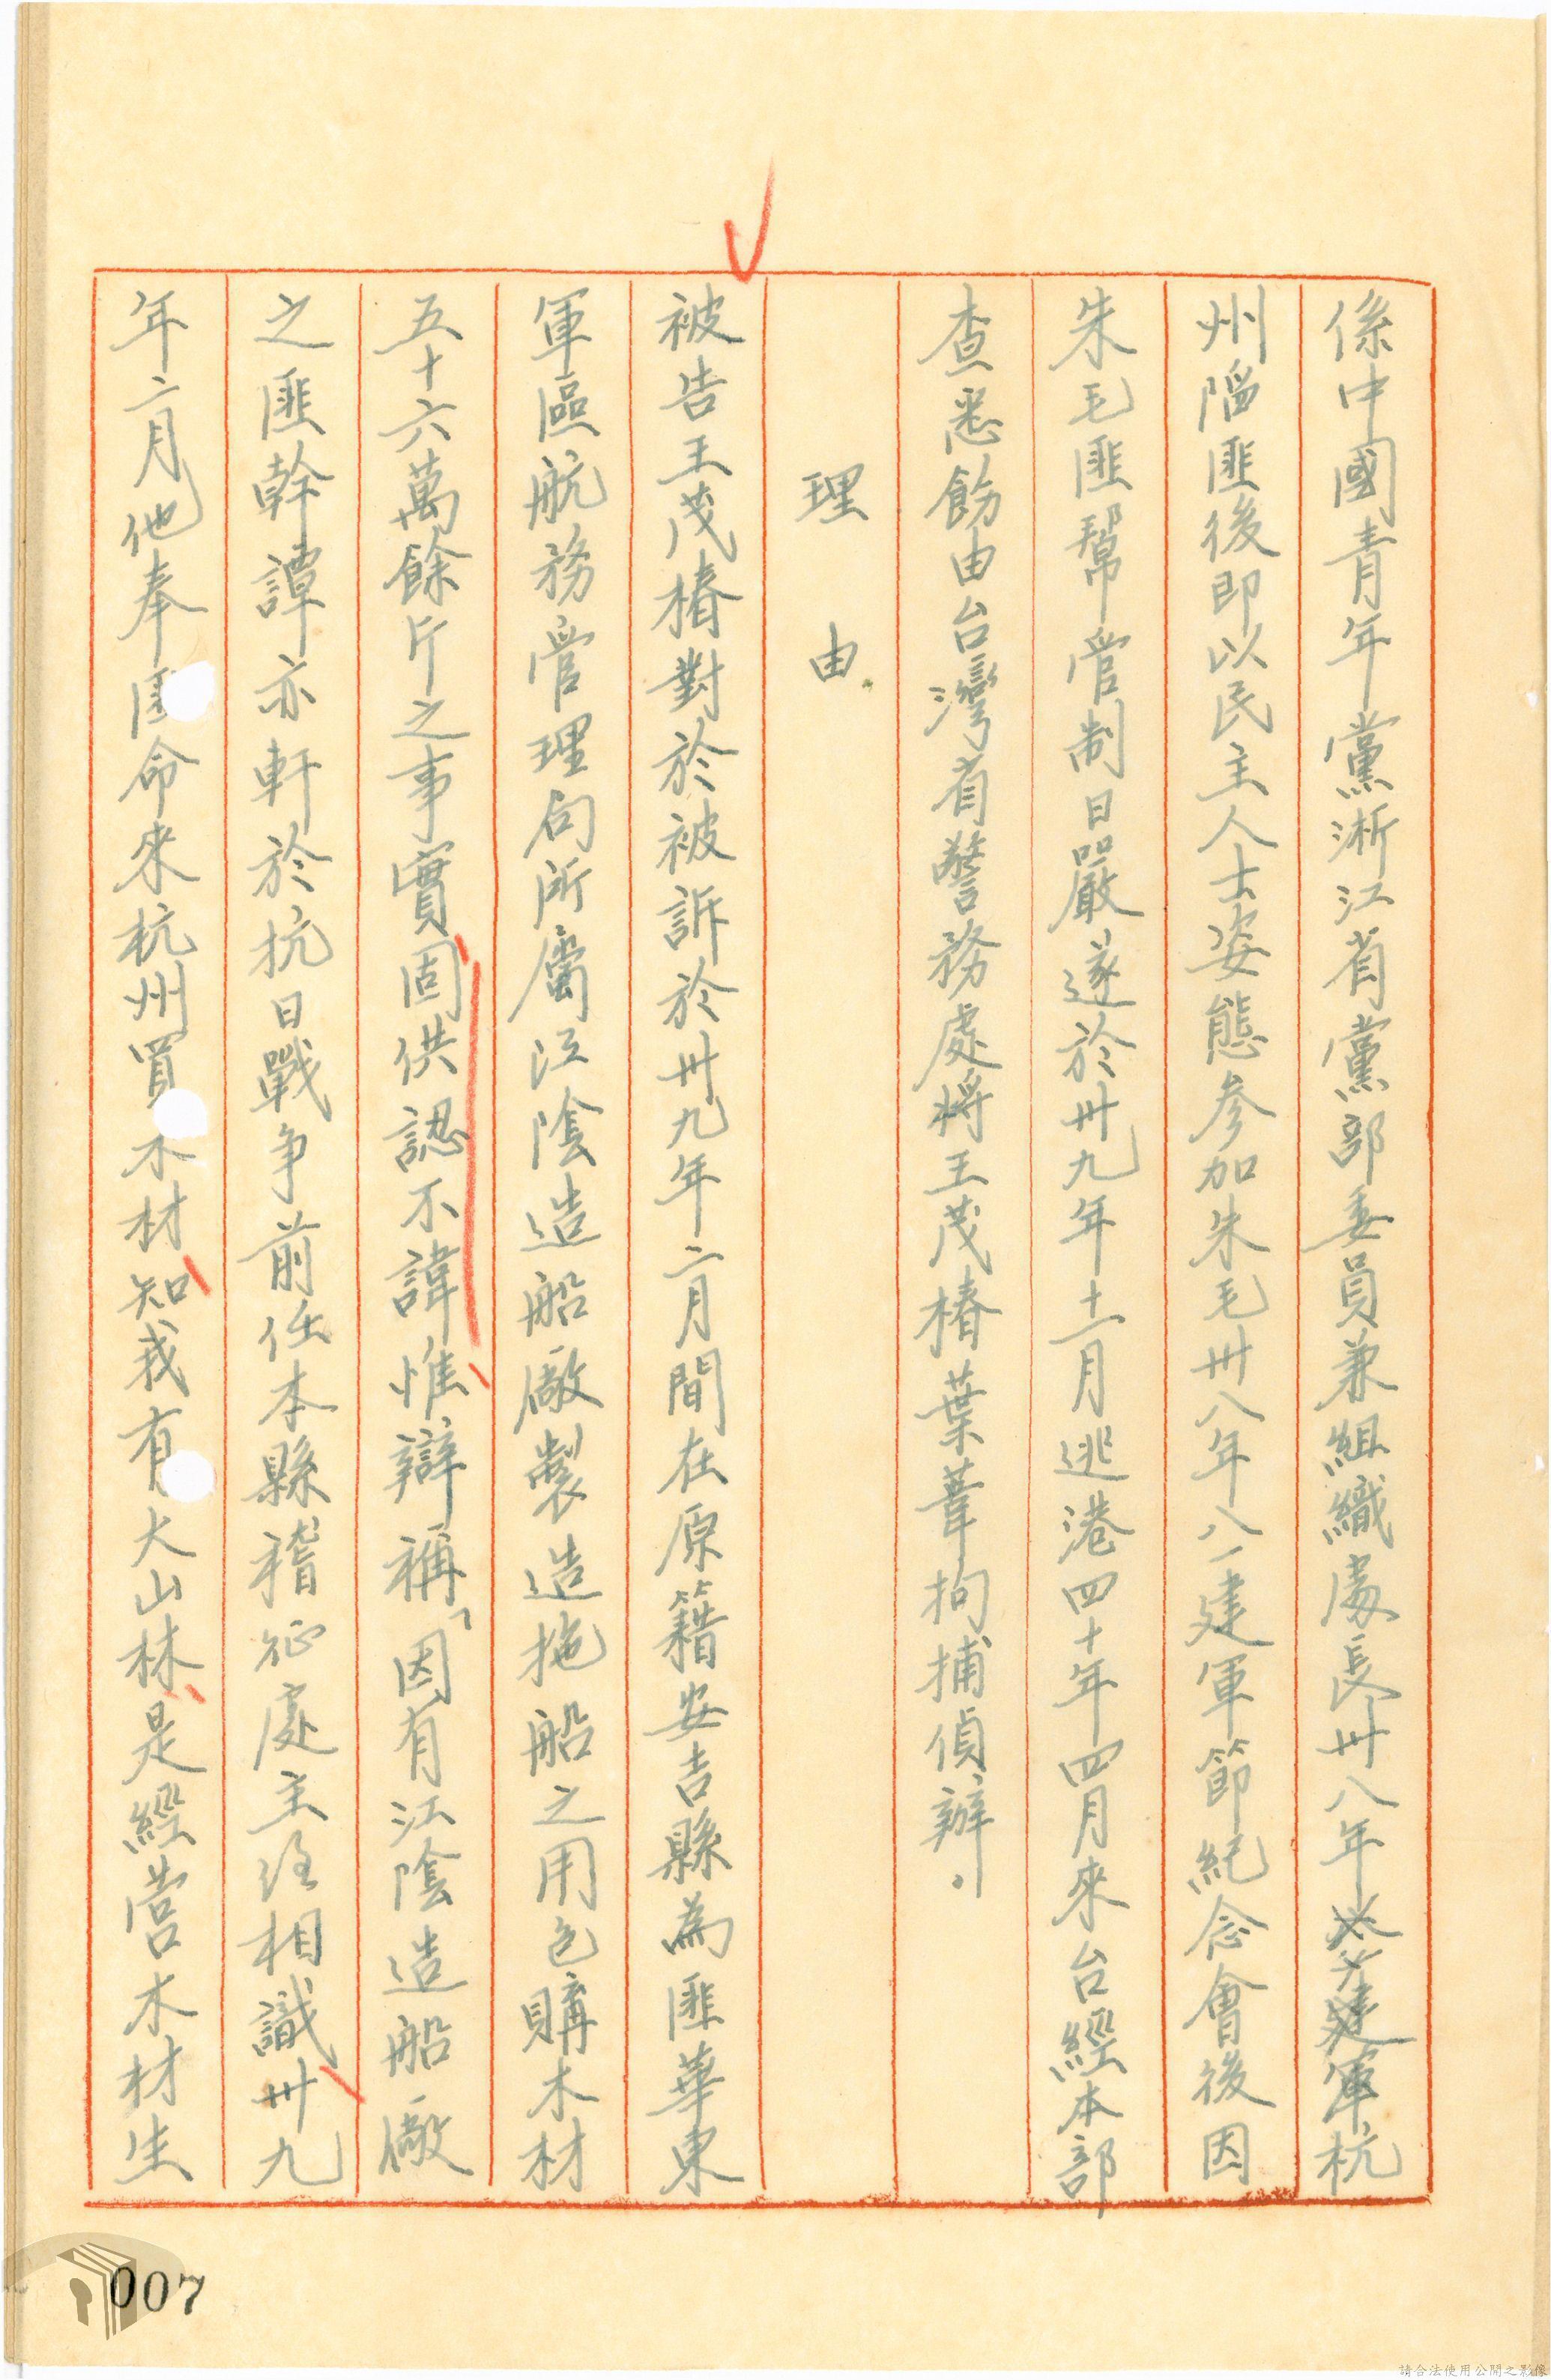 係中國青年黨淅江省黨部委員兼組織處長卅八年杭
州陷匪後即以民主人士姿態參加朱毛卅八年八一建軍節紀念會後因
朱毛匪幫管制日嚴遂於卅九年十一月逃港四十年四月來台經本部
查悉飭由台灣省警務處將王茂椿葉葦拘捕偵辦、
理由
被告王茂椿對於被訴於卅九年二月間在原籍安吉縣為匪華東
軍區航務管理局所屬江陰造船廠製造拖船之用包購木材
五十六萬餘斤之事實固供認不諱惟辯稱「因有江陰造船廠
之匪幹譚亦軒於抗日戰爭前任本縣稽征處主任相識卅九
年二月他奉匪命來杭州買木材知我有大山林是經營木材生
007
請合法使用公開之影像